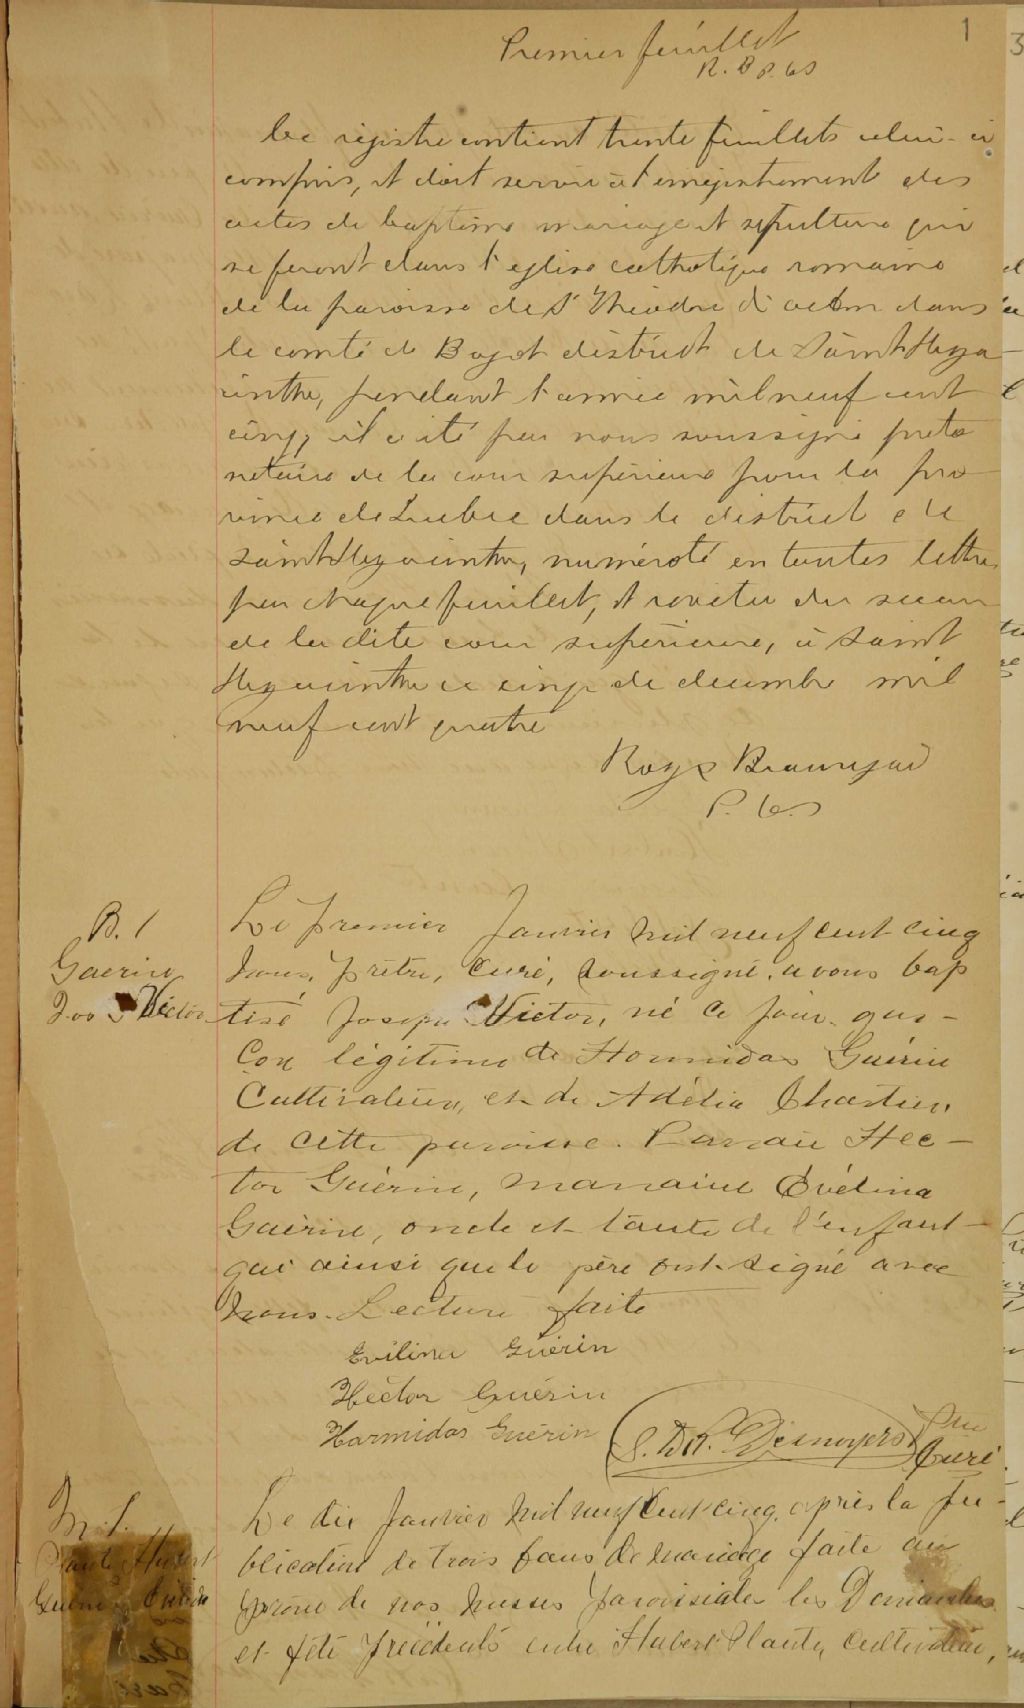 1
Premier feuillet
R. B P. C S
Ce régistre contient trente feuillets celui-ci
compris, et doit servir à l'enregistrement des
actes de baptême mariage et sépulture qui
se feront dans l'eglise catholique romaine
de la paroisse de St Théodore d'acton dans
le comté de Bagot district de Saint Hya-
cinthe, pendant l'année mil neuf cent
cinq, il a été par nous soussigné proto
notaire de la cour supérieure pour la pro-
vince de Québec dans le district de
Saint Hyacinthe, numéroté en toutes lettres
par chaque feuillet, et revetu du sceau
de la dite cour supérieure, à Saint
Hyacinthe ce cinq de décembre mil
neuf cent quatre
Roy & Beauregard
P. C. S
B. 1
Guérin
Jos Victor
Le premier Janvier mil neuf cent cinq
Nous, prêtre, Curé, soussigné avons bap
tisé Joseph Victor, né ce jour, gar-
çon légitime de Hormidas Guérin
Cultivateur, et de Adélia Chartier,
de cette paroisse. Parrain Hec-
tor Guérin, marraine Evélina
Guérin, oncle et tante de l'enfant
qui ainsi que le père ont signé avec
Nous. Lecture faite
Evélina Guérin
Héctor Guérin
Harmidas Guérin
Desnoyers Ptre
Curé
M. 1.
Plante Hubert
&
Guérin
Le dix Janvier mil neuf cent cinq, après la Pu-
blication de trois bans de mariage faite au
prône de nos messes paroissiales les Dimanches
et fête précédents entre Hubert Plante, Cultivateur,